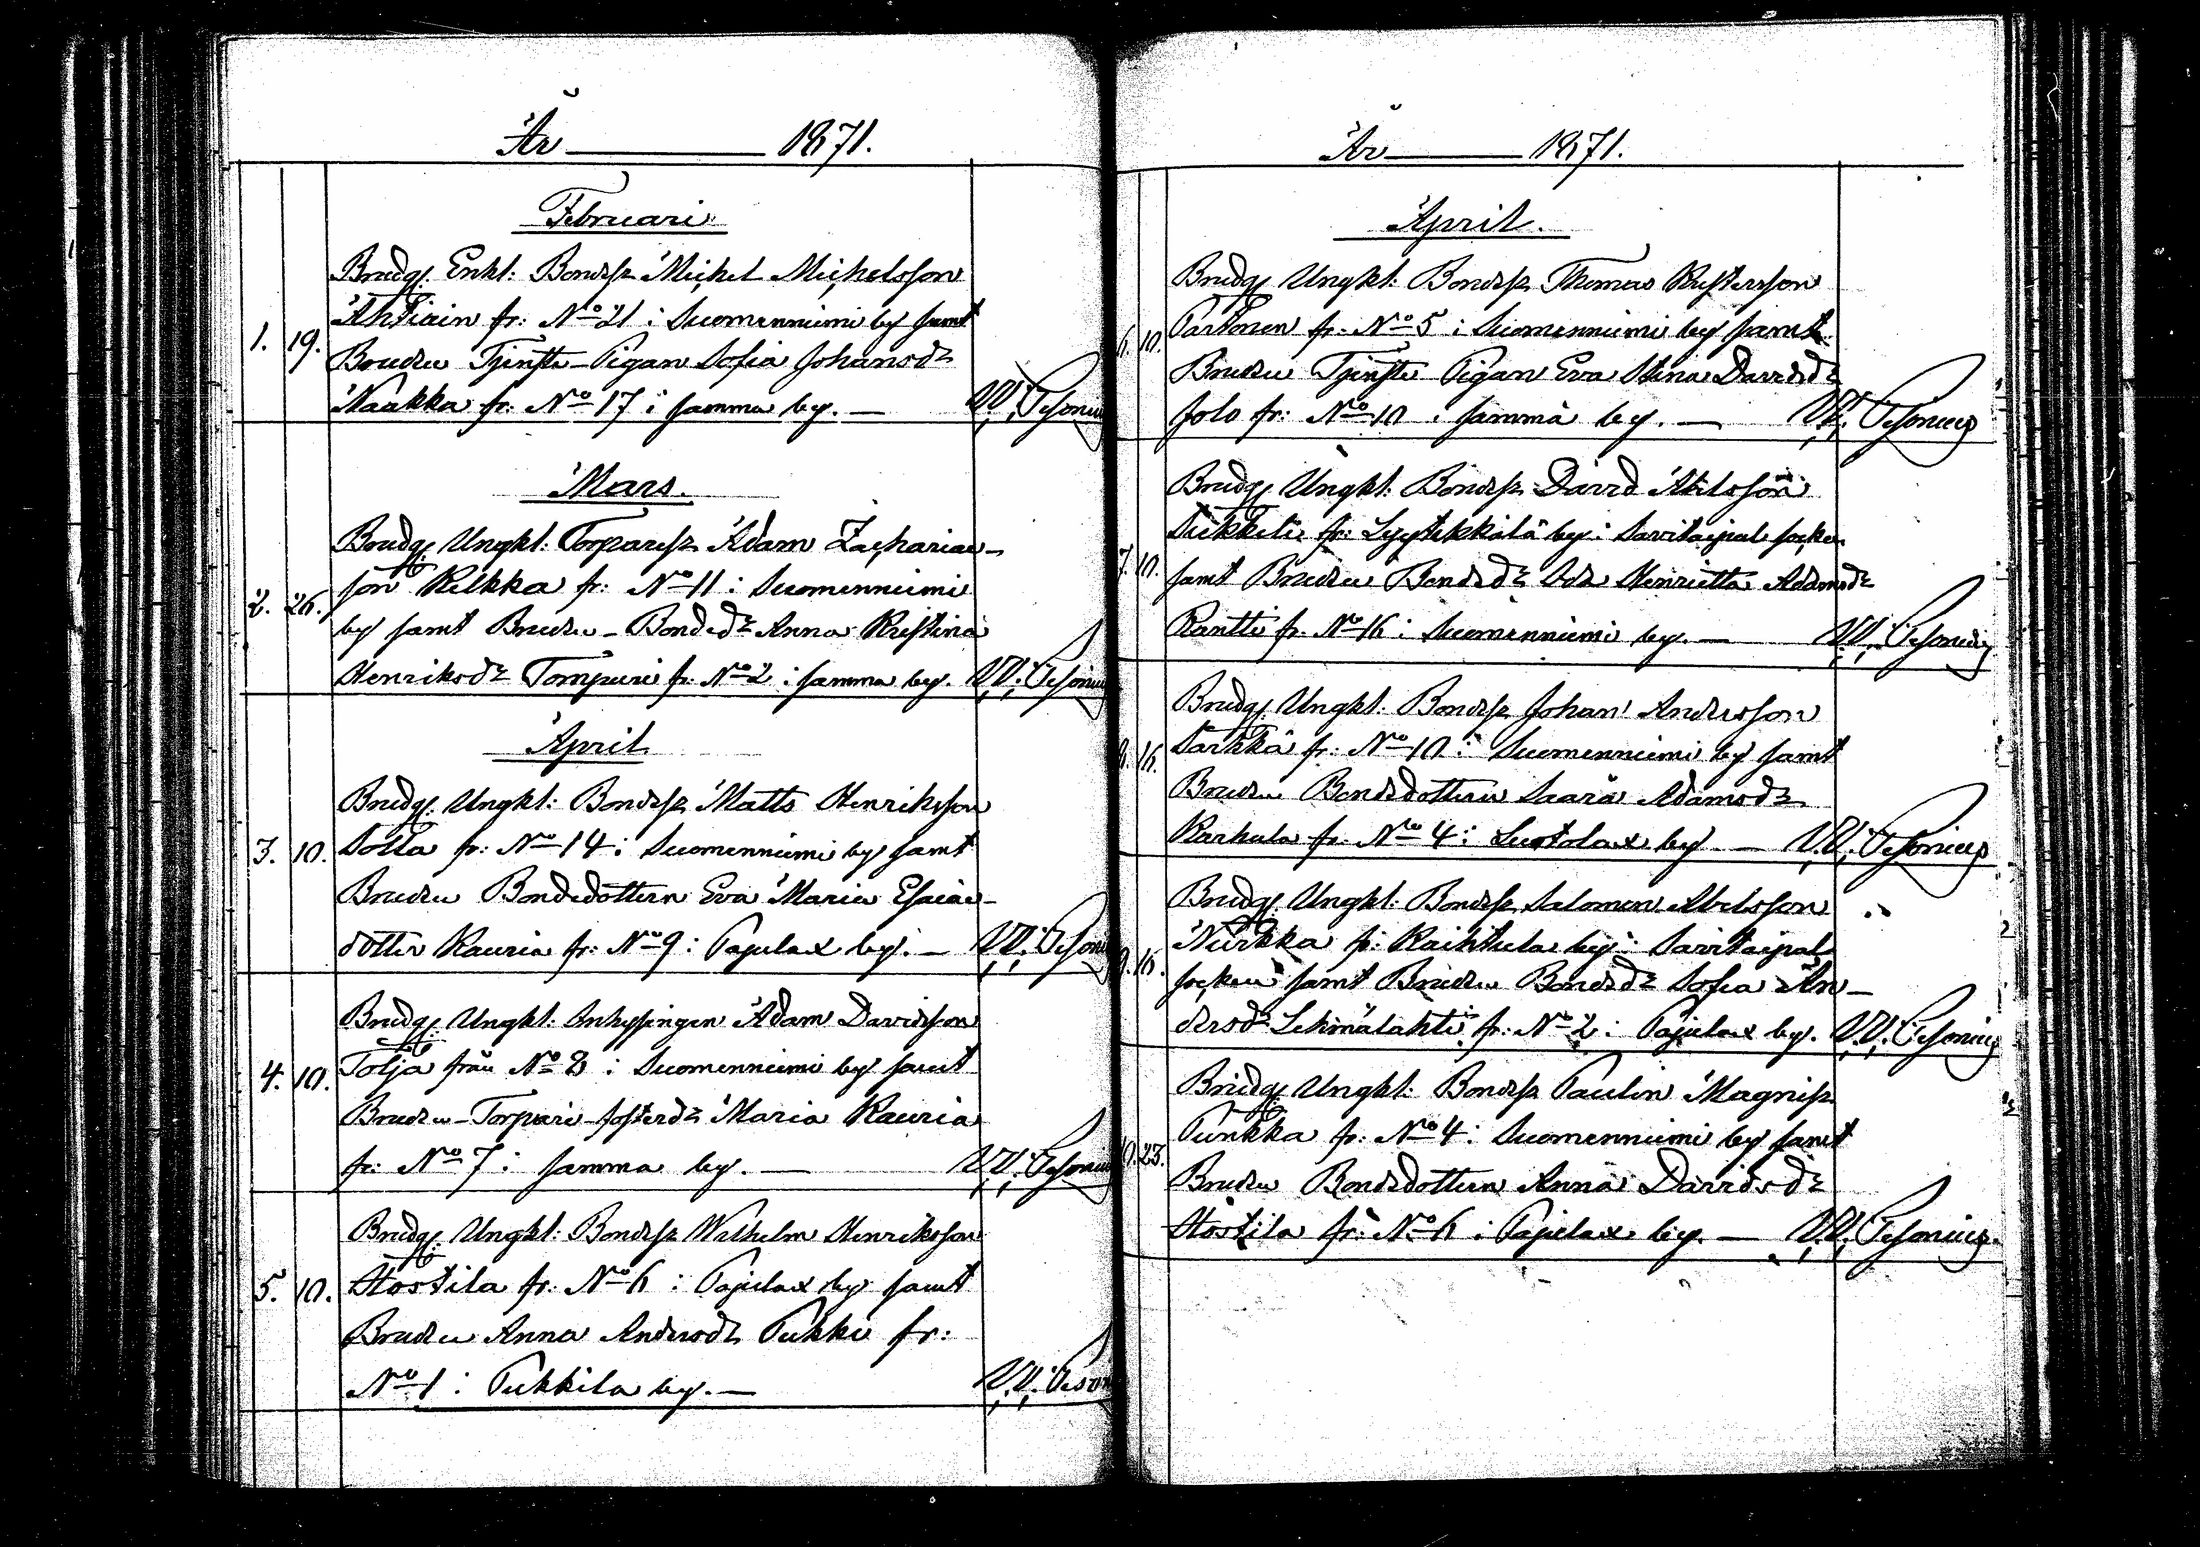 År 1871.
Februari
Brudg. Enkl: Bondes. Michel Michelsson
Ahtiain fr: No 21 i Suomenniemi by samt
1. 19. Bruden Tjenste-Pigan Sofia Johansdr
Naakka fr: No 17 i samma by. — W. Pesonius
Mars.
Brudg. Ungkl: Torpares. Adam Zacharias-
son Kelkka fr: No 11 i Suomenniemi
2. 26. by samt Bruden Bondedr Anna Kristina
Henriksdr Tompuri fr: No 2 i samma by. W. Pesonius
April
Brudg. Ungkl: Bondes. Matts Henriksson
3. 10. fr: No 14 i Suomenniemi by samt
Bruden Bondedottern Eva Maria Esaias-
dotter Kauria fr: No 9 i Pajulax by. — W. Pesonius
Brudg. Ungkl: Inhysingen Adam Davidsson
4. 10. Tolja från No 8 i Suomenniemi by samt
Bruden Torpare-fosterdr Maria Kauria
fr: No 7 i samma by. — W. Pesonius
Brudg. Ungkl: Bondes. Wilhelm Henriksson
5. 10. Hostila fr: No 6 i Pajulax by samt
Bruden Anna Andersdr Pukki fr:
No 1 i Pukkila by. — W. Pesonius
År 1871.
April.
Brudg. Ungkl: Bondes. Thomas Kristersson
6. 10. Partonen fr: No 5 i Suomenniemi by samt
Bruden Tjenste Pigan Eva Stina Davidsdr
Jolo fr: No 10 i samma by. — W. Pesonius
Brudg. Ungkl: Bondes. David Abelsson
fr: Lyytikkälä by i Savitaipal socken
7. 10. samt Bruden Bondedr Henrietta Adamsdr
Rantti fr. No 16 i Suomenniemi by. — W. Pesonius
Brudg. Ungkl: Bondes. Johan Andersson
8. 16. Särkkä fr: No 10 i Suomenniemi by samt
Bruden Bondedottern Saara Adamsdr
Karhula fr. No 4 i Luotolax by. — W. Pesonius
Brudg. Ungkl: Bondes. Salomon Abelsson
9. 16. Nurkka fr: Kaihtula by i Savitaipal
socken samt Bruden Bondedr Sofia An-
dersdr Lehmälahti fr: No 2 i Pajulax by. W. Pesonius
Brudg. Ungkl: Bondes. Paulin Magnis.
10. 23. Punkka fr: No 4 i Suomenniemi by samt
Bruden Bondedottern Anna Davidsdr
Hostila fr: No 6 i Pajulax by. — W. Pesonius.